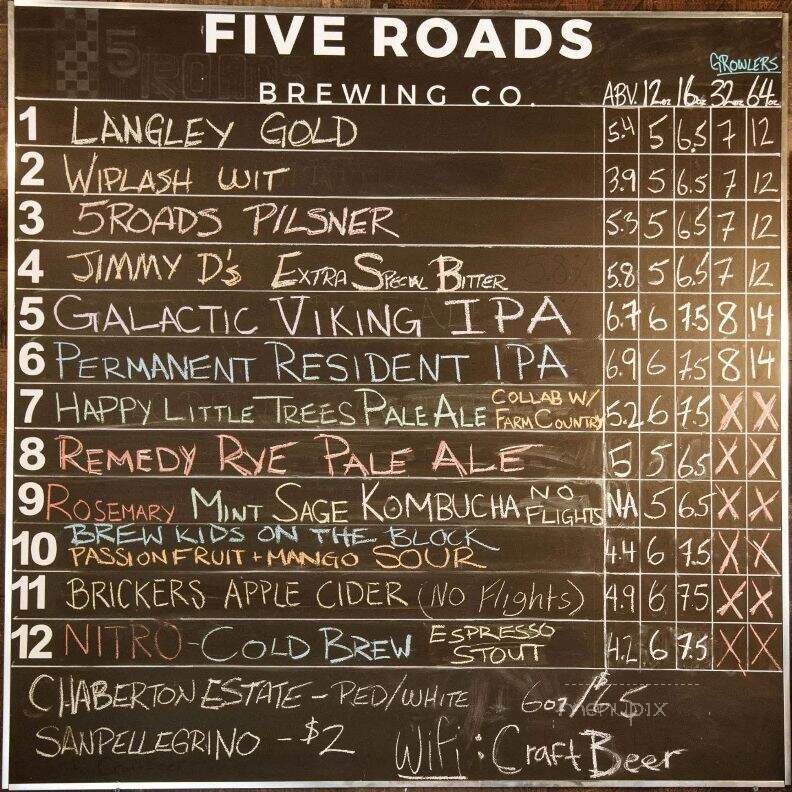 FIVE ROADS
BREWING CO.
GROWLERS
ABV. 12oz 16oz 32oz 64oz
1 LANGLEY GOLD 5.4 5 6.5 7 12
2 WIPLASH WIT 3.9 5 6.5 7 12
3 5ROADS PILSNER 5.3 5 6.5 7 12
4 JIMMY D's EXTRA SPECIAL BITTER 5.8 5 6.5 7 12
5 GALACTIC VIKING IPA 6.7 6 7.5 8 14
6 PERMANENT RESIDENT IPA 6.9 6 7.5 8 14
7 HAPPY LITTLE TREES PALE ALE COLLAB W/ FARM COUNTRY 5.2 6 7.5 X X
8 REMEDY RYE PALE ALE 5 5 6.5 X X
9 ROSEMARY MINT SAGE KOMBUCHA NO FLIGHTS NA 5 6.5 X X
10 BREW KIDS ON THE BLOCK
PASSIONFRUIT + MANGO SOUR 4.4 6 7.5 X X
11 BRICKERS APPLE CIDER (NO Flights) 4.9 6 7.5 X X
12 NITRO - COLD BREW ESPRESSO STOUT 4.2 6 7.5 X X
CHABERTON ESTATE - RED/WHITE 6oz/$6.5
SANPELLEGRINO - $2 Wifi: CraftBeer
menupix